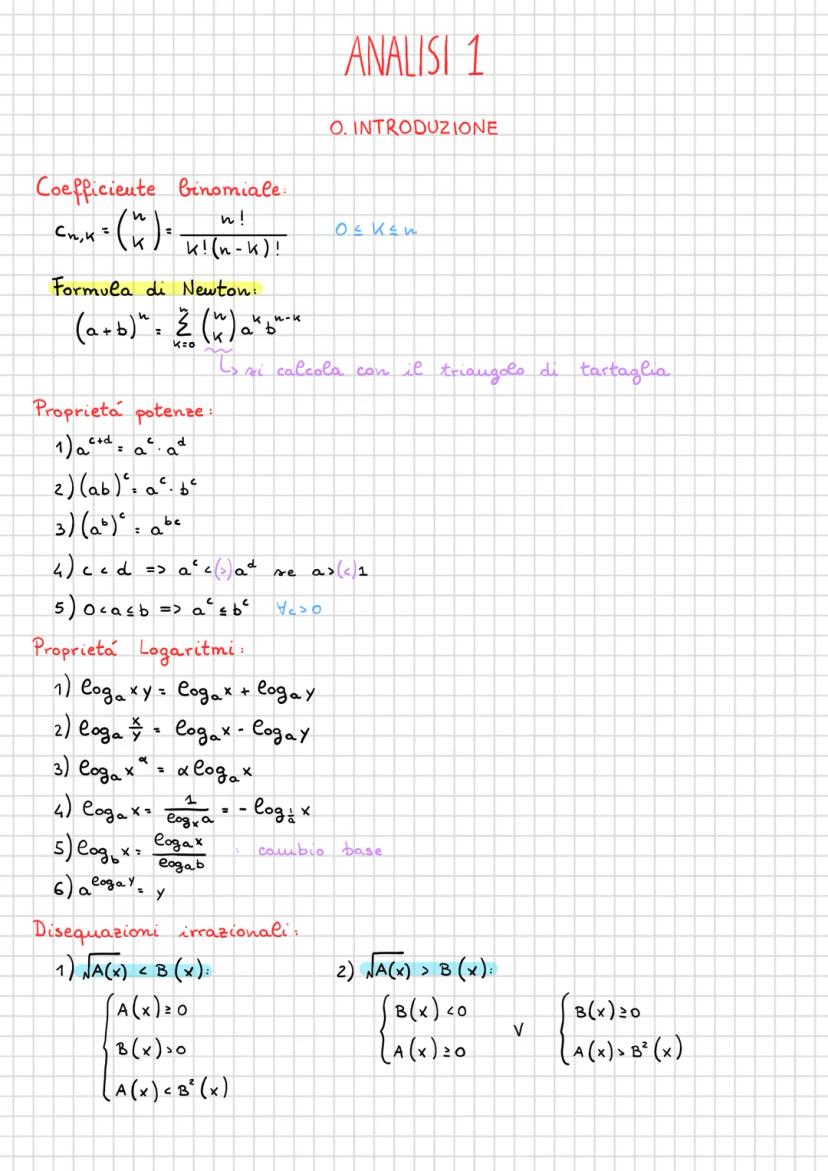 ANALISI 1
0. INTRODUZIONE
Coefficiente binomiale:
Cn,k = (n k) = n! / k!(n-k)!   0 ≤ K ≤ n
Formula di Newton:
(a+b)ⁿ = Σₖ₌₀ⁿ (n k) aᵏ bⁿ⁻ᵏ
↳ si calcola con il triangolo di tartaglia
Proprietá potenze:
1) a^(c+d) = a^c · a^d
2) (ab)^c = a^c · b^c
3) (a^b)^c = a^(bc)
4) c < d => a^c <(>) a^d se a >(<) 1
5) 0 < a ≤ b => a^c ≤ b^c   ∀c > 0
Proprietá Logaritmi:
1) logₐ xy = logₐ x + logₐ y
2) logₐ x/y = logₐ x - logₐ y
3) logₐ x^α = α logₐ x
4) logₐ x = 1 / logₓ a = - log_(1/a) x
5) log_b x = logₐ x / logₐ b : cambio base
6) a^(logₐ y) = y
Disequazioni irrazionali:
1) √A(x) < B(x):   2) √A(x) > B(x):
{ A(x) ≥ 0   { B(x) < 0   V   { B(x) ≥ 0
B(x) > 0   A(x) ≥ 0   A(x) > B²(x)
A(x) < B²(x)